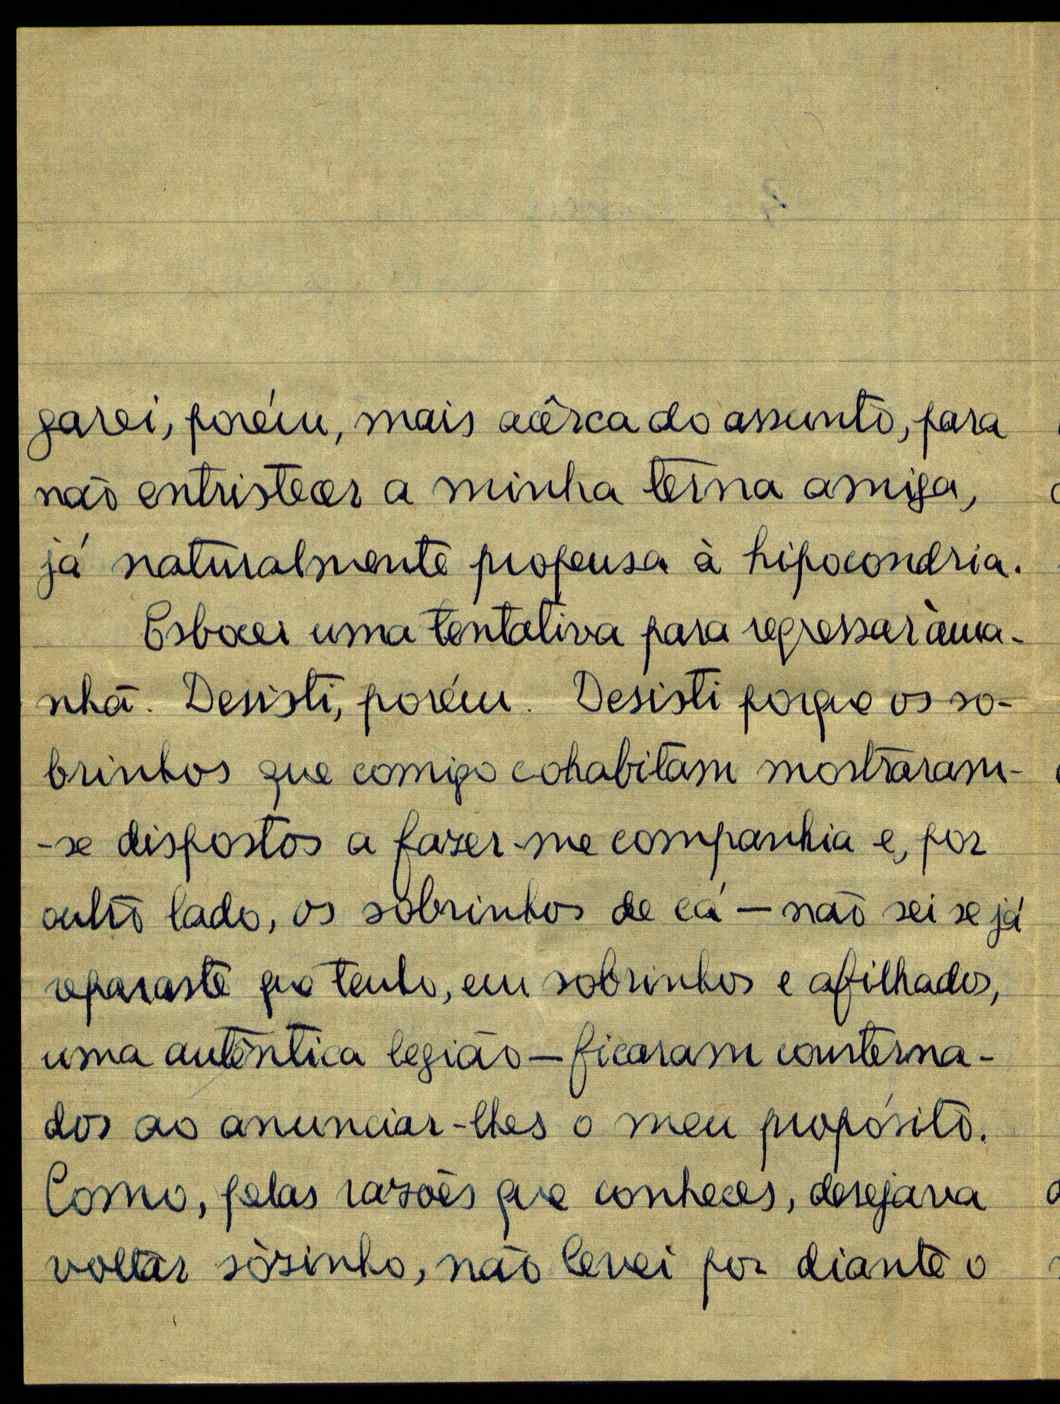 garei, porém, mais acêrca do assunto, para
não entristecer a minha terna amiga,
já naturalmente propensa à hipocondria.
Esbocei uma tentativa para regressar àma-
nhã. Desisti, porém. Desisti porque os so-
brinhos que comigo cohabitam mostraram-
-se dispostos a fazer-me companhia e, por
outro lado, os sobrinhos de cá — não sei se já
reparaste que tenho, em sobrinhos e afilhados,
uma autêntica legião — ficaram consterna-
dos ao anunciar-lhes o meu propósito.
Como, pelas razões que conheces, desejava
voltar sòzinho, não levei por diante o